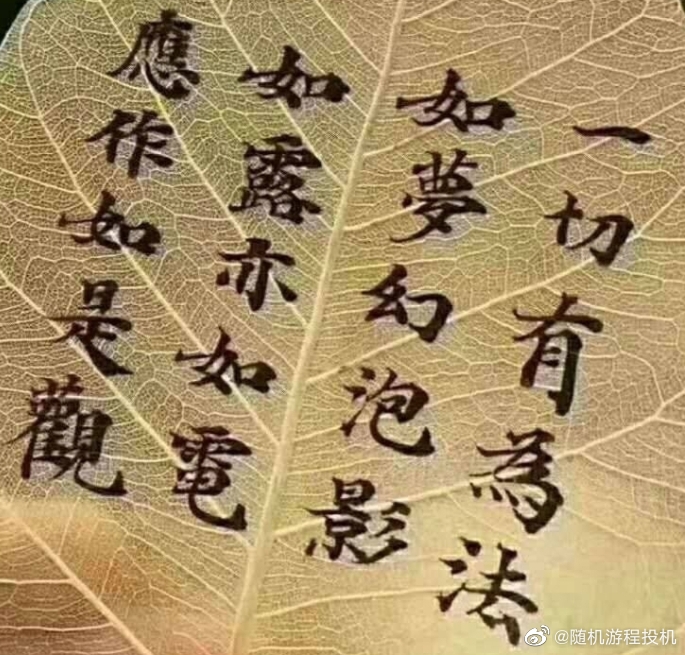 一切有為法
如夢幻泡影
如露亦如電
應作如是觀
@随机游程投机